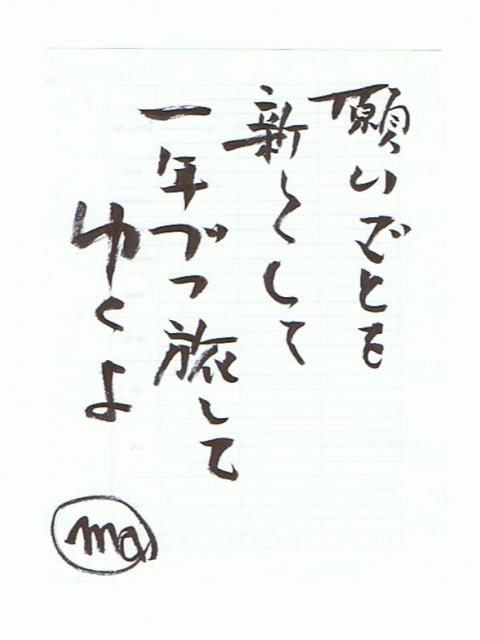 願いごとを
新しくして
一年づつ旅して
ゆくよ
ma